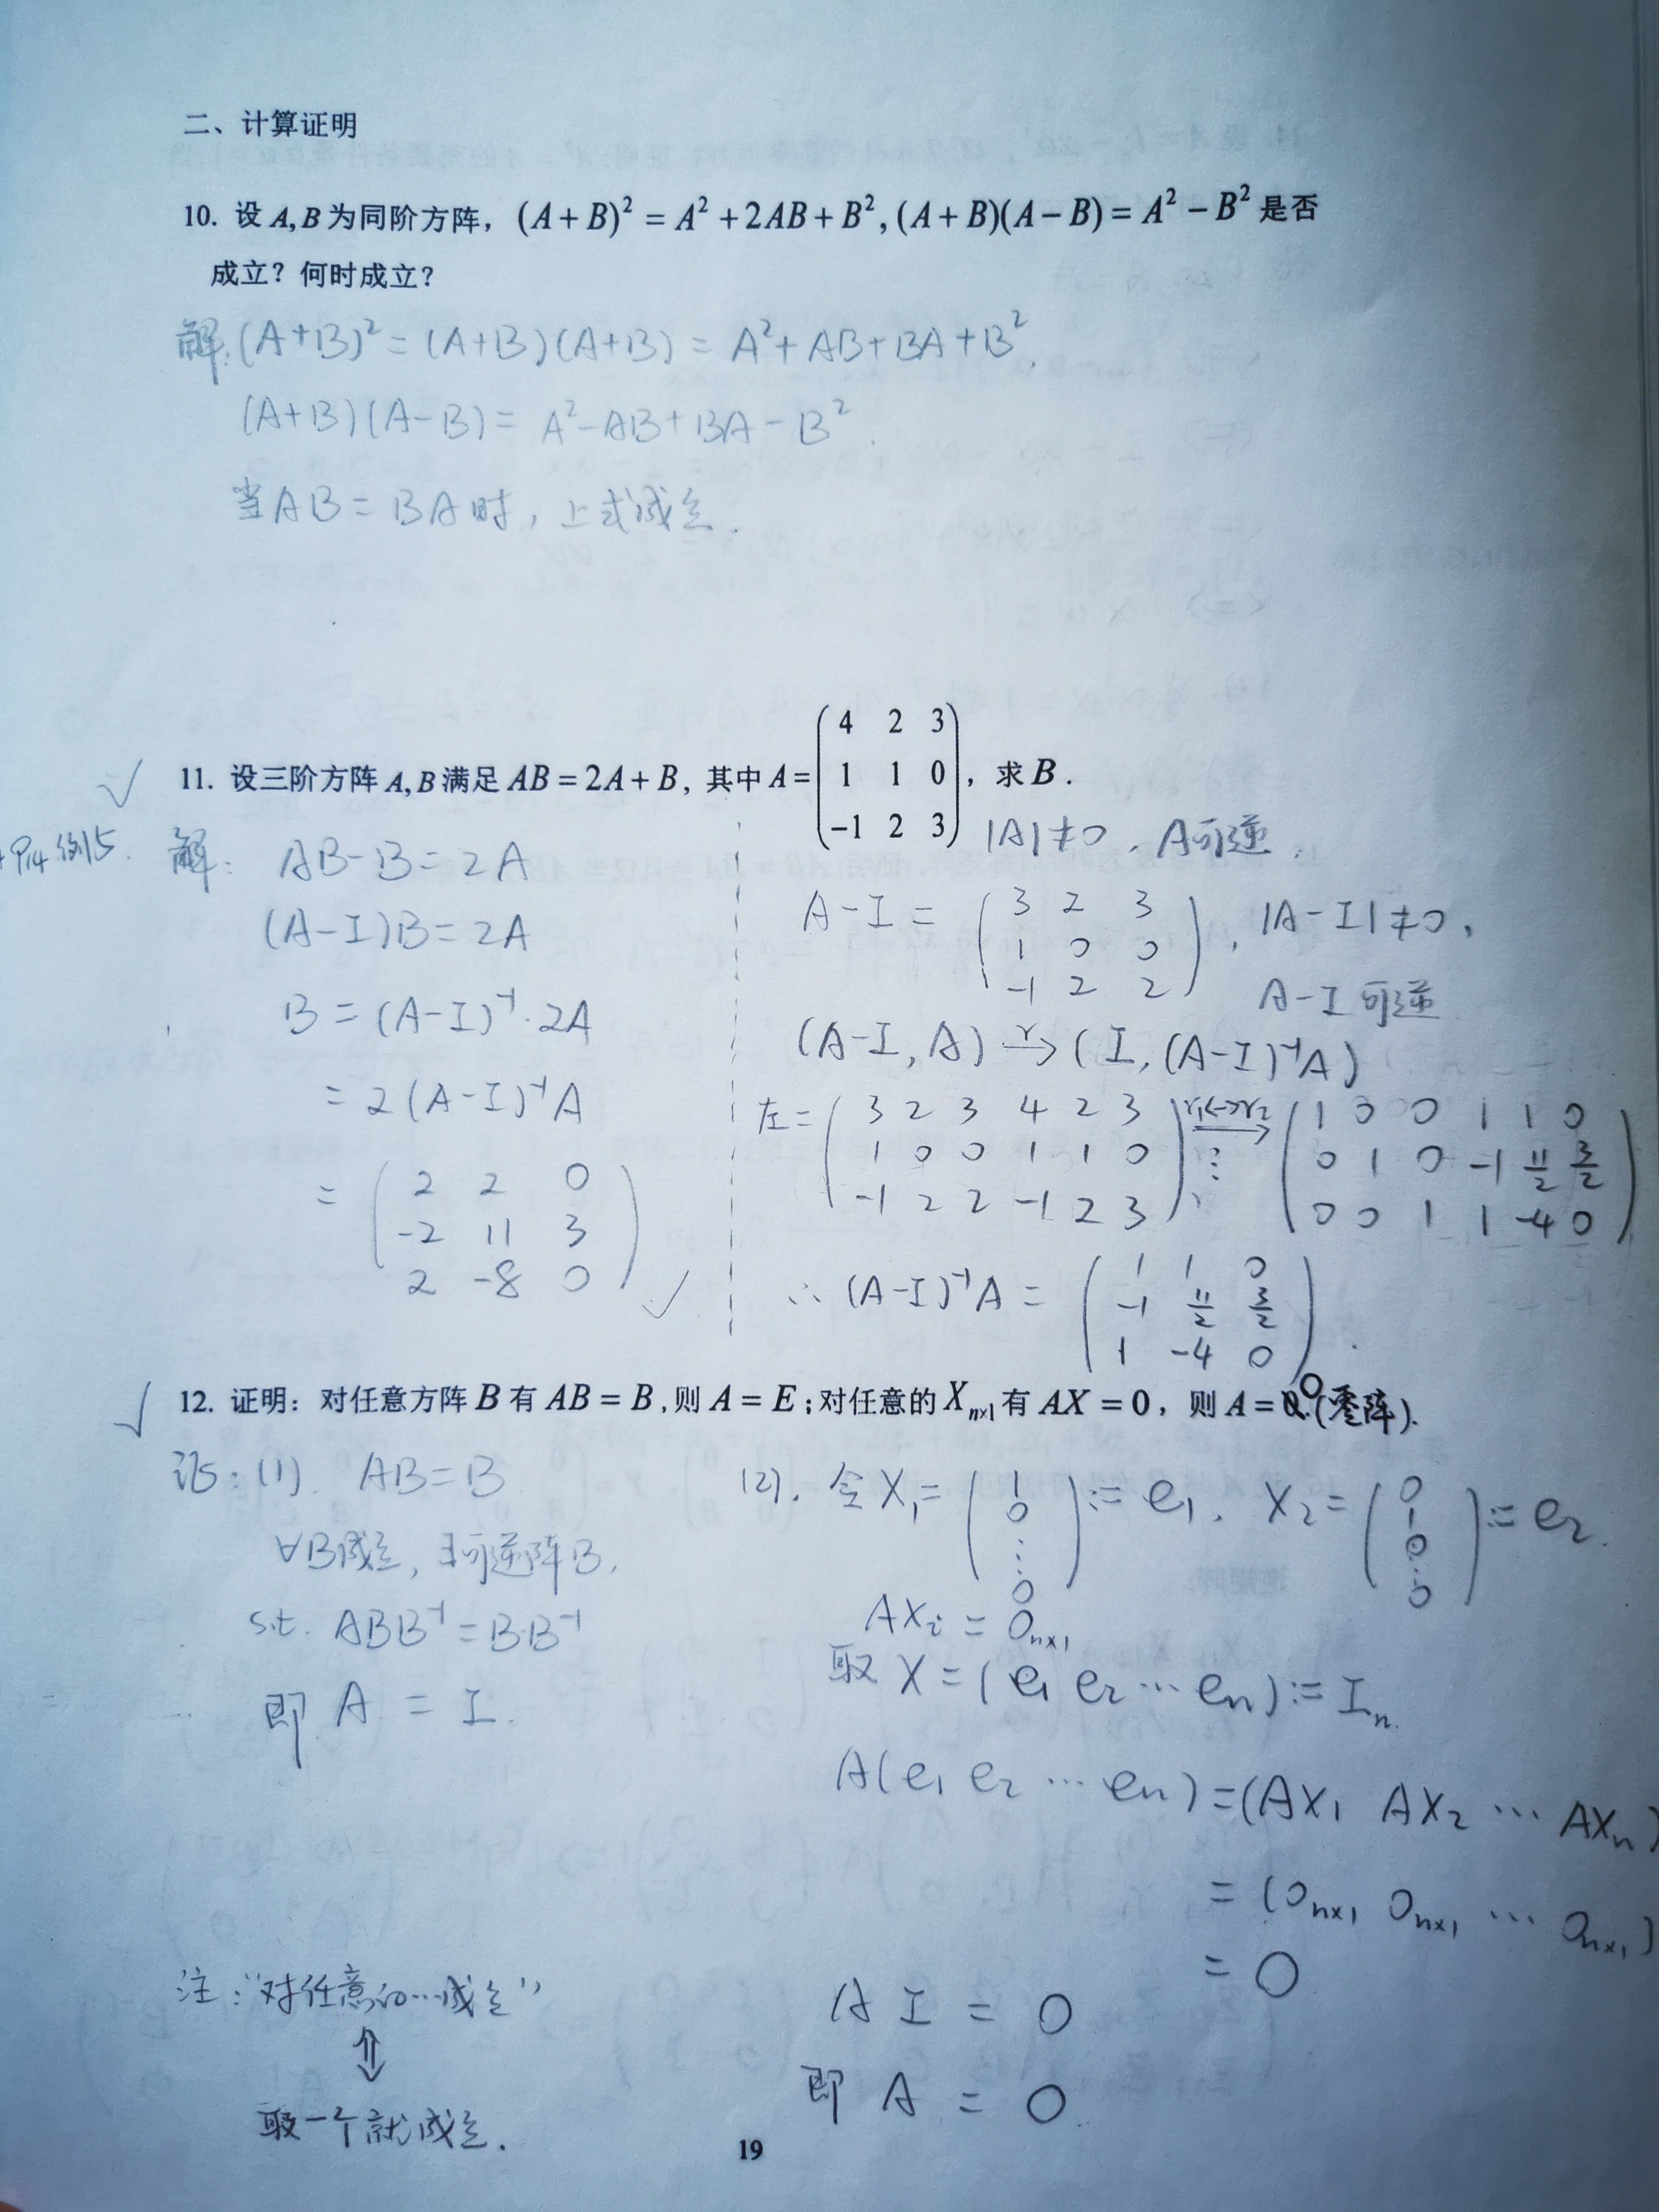 二、计算证明
10. 设 A,B 为同阶方阵，(A+B)² = A² + 2AB + B², (A+B)(A−B) = A² − B² 是否
成立？何时成立？
解: (A+B)² = (A+B)(A+B) = A² + AB + BA + B².
(A+B)(A−B) = A² − AB + BA − B².
当 AB = BA 时, 上式成立.
11. 设三阶方阵 A,B 满足 AB = 2A + B, 其中 A = (4 2 3
1 1 0
−1 2 3), 求 B.
P14 例15.
解: AB − B = 2A
(A−I)B = 2A
B = (A−I)⁻¹·2A
= 2(A−I)⁻¹A
= (2 2 0
−2 11 3
2 −8 0)
|A| ≠ 0, A可逆.
A−I = (3 2 3
1 0 0
−1 2 2), |A−I| ≠ 0,
A−I 可逆
(A−I, A) →r (I, (A−I)⁻¹A)
左 = (3 2 3 4 2 3
1 0 0 1 1 0
−1 2 2 −1 2 3) r₁↔r₂ → ⋮ (1 0 0 1 1 0
0 1 0 −1 11/2 3/2
0 0 1 1 −4 0)
∴ (A−I)⁻¹A = (1 1 0
−1 11/2 3/2
1 −4 0).
12. 证明：对任意方阵 B 有 AB = B, 则 A = E; 对任意的 Xₙₓ₁ 有 AX = 0, 则 A = 0 (零阵).
证: (1). AB = B
∀B成立, ∃可逆阵B,
s.t. ABB⁻¹ = B·B⁻¹
即 A = I.
(2). 令 X₁ = (1
0
⋮
0) := e₁, X₂ = (0
1
0
⋮
0) := e₂.
AXᵢ = 0ₙₓ₁
取 X = (e₁ e₂ ⋯ eₙ) := Iₙ.
A(e₁ e₂ ⋯ eₙ) = (AX₁ AX₂ ⋯ AXₙ)
= (0ₙₓ₁ 0ₙₓ₁ ⋯ 0ₙₓ₁)
= 0
A I = 0
即 A = 0
注: "对任意的…成立"
⇕
取一个就成立.
19